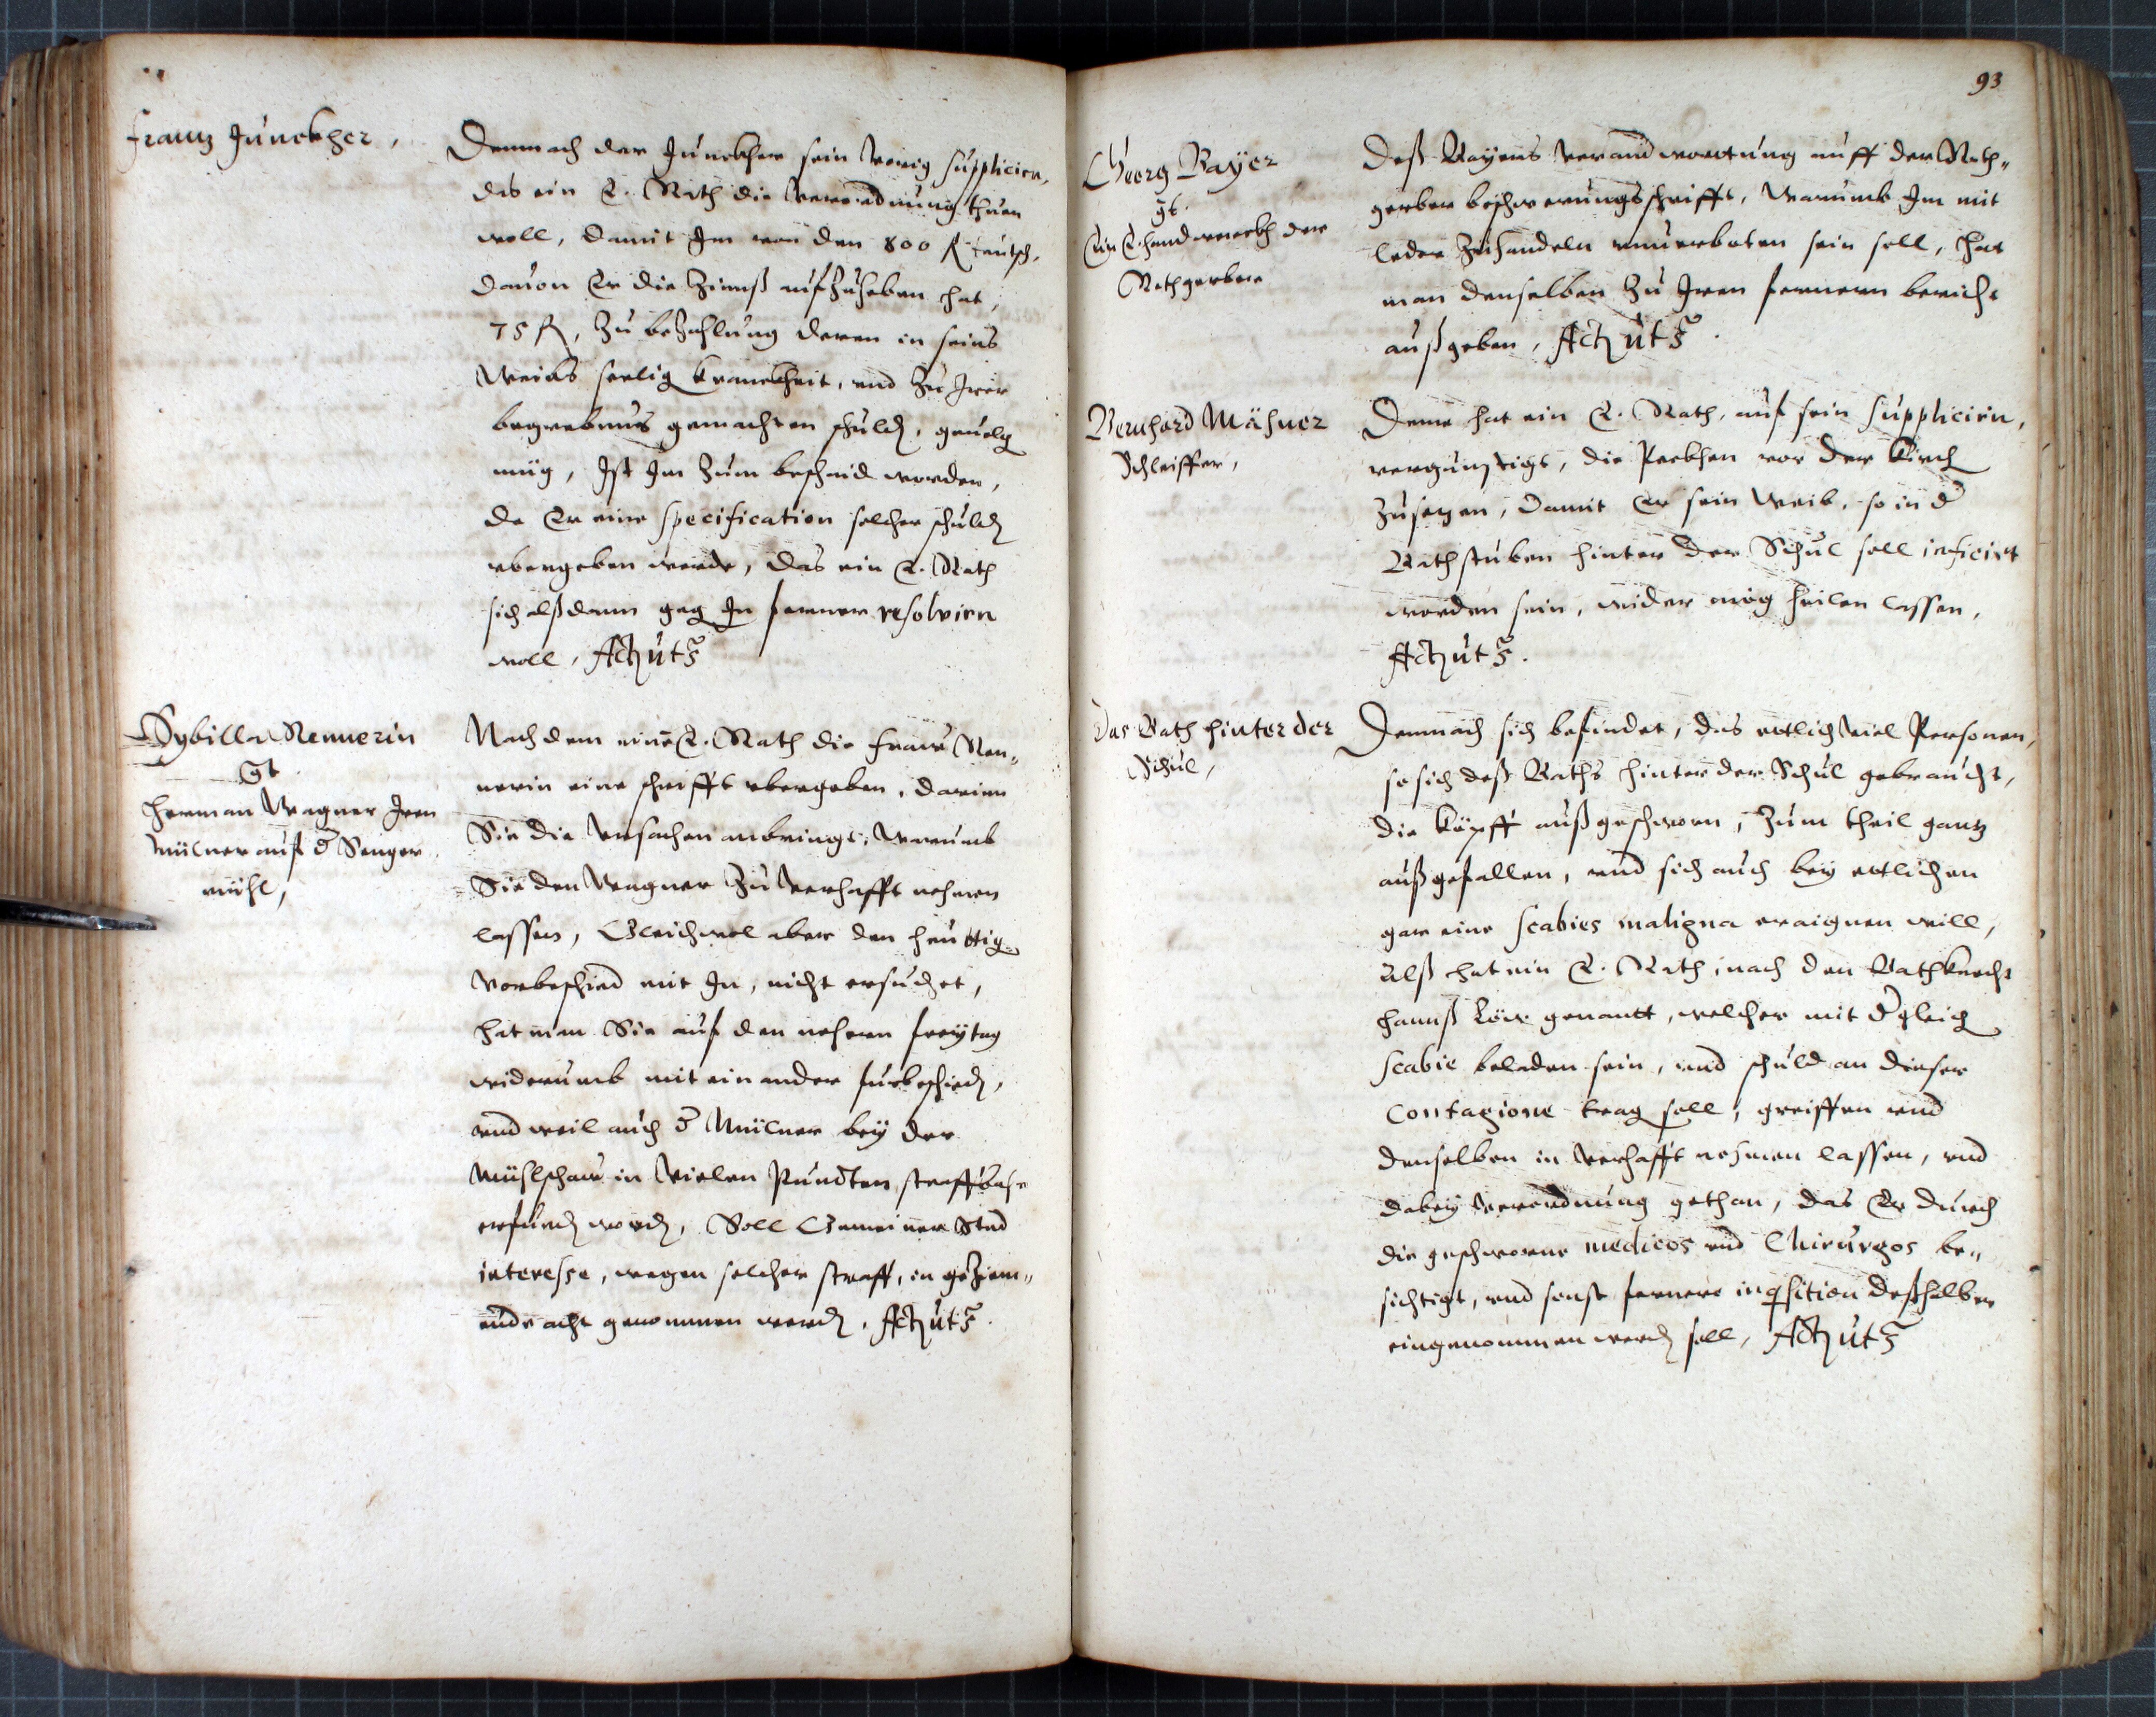 Frantz Junckher,
Demnach der Junckher sein vorig supplicirn,
das ein E. Rath die verordnung thuen
woll, damit Im von den 800 fl teutsch,
dauon Er die Zinnß aufzuheben hat,
75 fl, zu bezahlung deren in seins
Weibs seelig kranckheit, und zu Irer
begrebnus gemachten schuld,
müg, Ist Im zum bescheid worden,
da Er eine specification solcher schuld
ubergeben werde, das ein E. Rath
sich alßdann geg In ferner resolvirn
woll, Act ut s
Sybilla Rennerin
gt
Herman Wagner Iren
Mülner auf d Senger
mühl,
Nach dem eine E. Rath die Fraw Ren„
nerin eine schrifft ubergeben, darinn
Sie die ursachen anbringt, warumb
Sie den Wagner zu verhafft nehmen
lassen, Gleichwol aber den heuttig
vorbeschied mit In, nicht ersuchet,
hat man Sie auf den nehern freytag
widerumb mit einander furbeschied,
und weil auch d Mülner bey der
Mühlschaw in vielen Puncten straffbar
erfund word, Soll Gemeiner Stad
interesse, wegen solcher straff, in geziem„
ende acht genommen werd, Act ut s.
93
Georg Bayer
gt.
Ein E. handwerckh der
Rothgerber
Deß Bayers verandwortung auff der Roth„
gerber beschwerungsschrifft, warumb Im mit
leder zuhandeln unuerboten sein soll, hat
man denselben zu Iren fernern bericht
außgeben, Act ut s.
Bernhard Mähner
Schleiffer,
Deme hat ein E. Rath, auf sein supplicirn,
vergünstigt, die Peckhen vor der Kirch
zusetzen, damit Er sein Weib, so in d
Bathstuben hinter der Schul soll inficirt
worden sein, wider mög heilen lassen,
Act ut s.
Das Bath hinter der
Schul,
Demnach sich befindet, das ettlich viel Personen,
so sich deß Baths hinter der Schul gebraucht,
die köpff außgeschworn, zum theil gantz
außgefallen, und sich auch bey ettlichen
gar eine scabies maligna eraignen will,
Alß hat ein E. Rath, nach den Bathknecht
Hannß Löw genantt, welcher mit d gleich
scabie beladen sein, und schuld an dieser
contagione trag soll, greiffen und
denselben in verhafft nehmen lassen, und
dabey verordnung gethan, das Er durch
die geschworne medicos und Chirurgos be„
sichtigt, und sonst fernere inqsition deßhalben
eingenommen werd soll, Act ut s